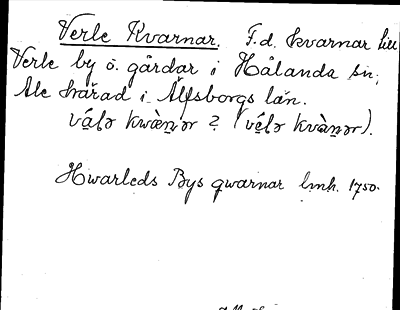 Verle Kvarnar. F.d. kvarnar till
Verle by o. gårdar i Hålanda sn,
Ale härad i Älfsborgs län.
vé̱lə kwàṉər ? (vé̱lə kvàṉər).
Hwarleds Bys qwarnar lmh. 1750.